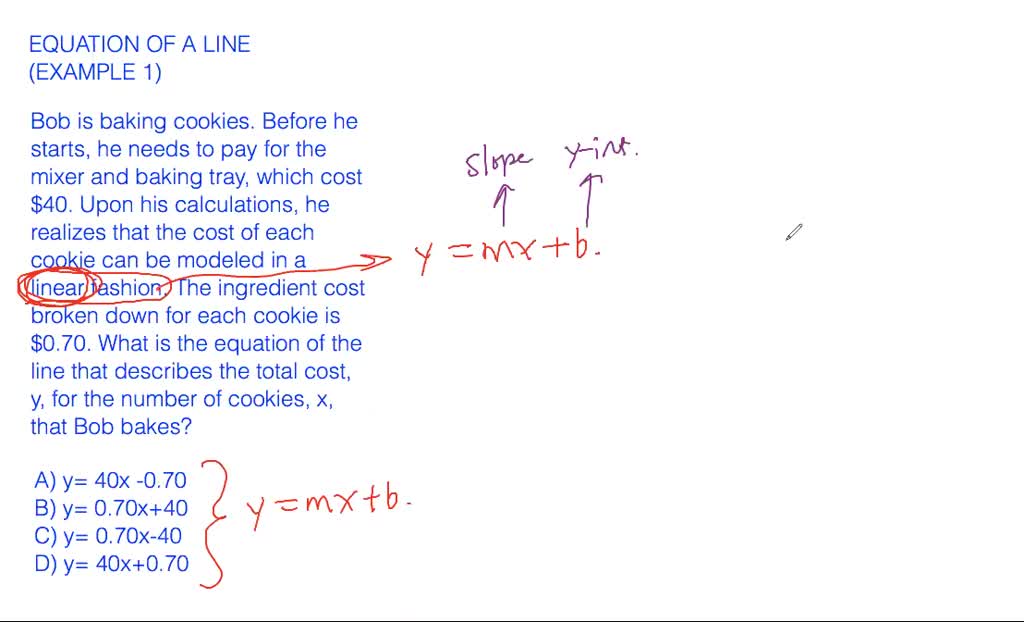 EQUATION OF A LINE
(EXAMPLE 1)
Bob is baking cookies. Before he
starts, he needs to pay for the
mixer and baking tray, which cost
$40. Upon his calculations, he
realizes that the cost of each
cookie can be modeled in a
linear fashion. The ingredient cost
broken down for each cookie is
$0.70. What is the equation of the
line that describes the total cost,
y, for the number of cookies, x,
that Bob bakes?
A) y= 40x -0.70
B) y= 0.70x+40
C) y= 0.70x-40
D) y= 40x+0.70
slope y-int.
y = mx + b.
y = mx + b.